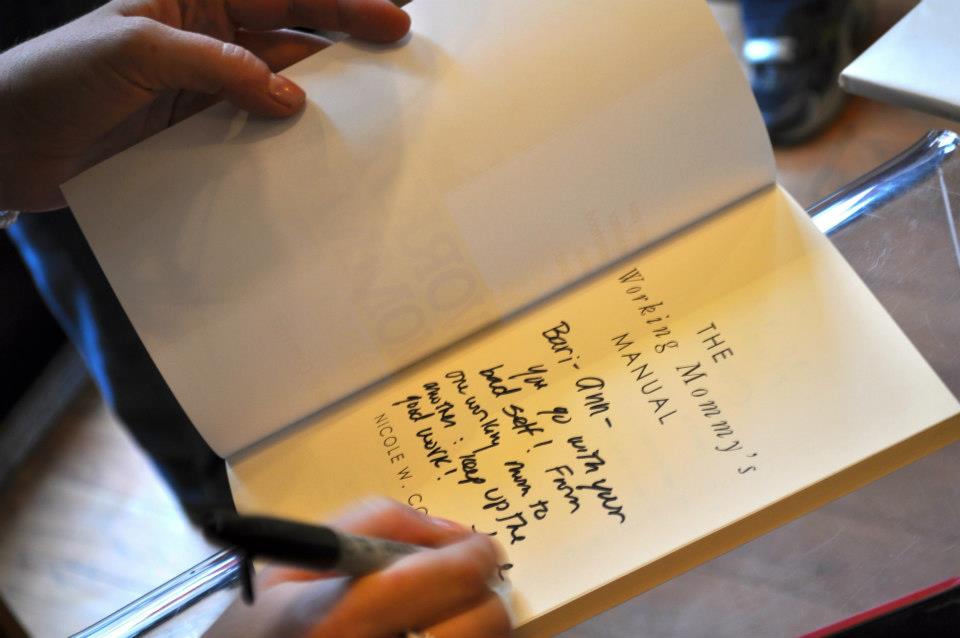 THE
Working Mommy's
MANUAL
Bari-Ann-
You go with your
bad self! From
one working mom to
another: keep up the
good work!
NICOLE W. CO